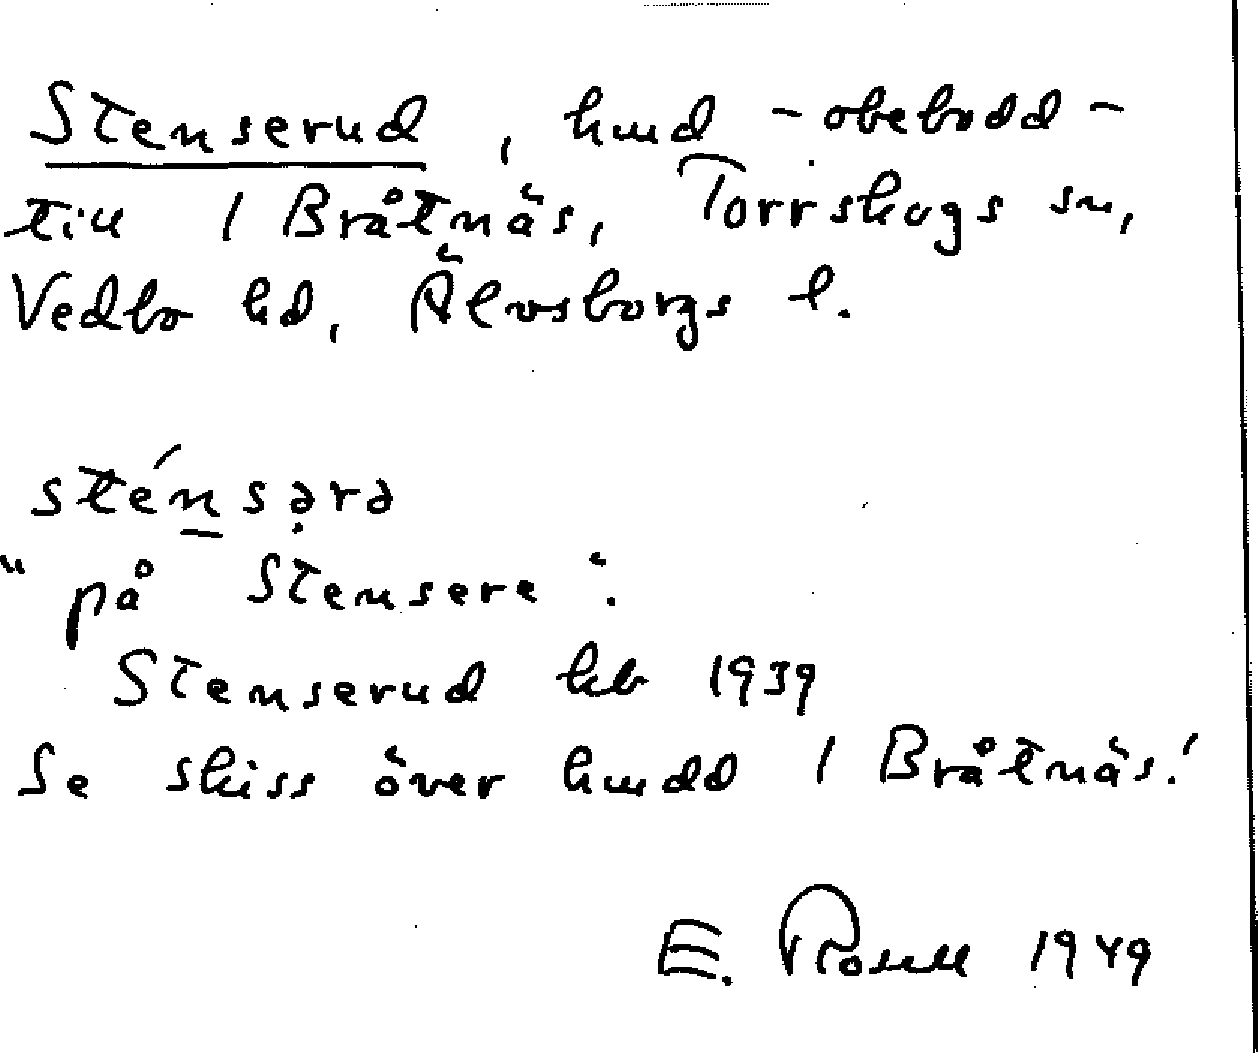 Stenserud, hmd - obebodd -
till 1 Bråtnäs, Torrskogs sn,
Vedbo hd, Älvsborgs l.
sténsə̣rə
"på Stensere".
Stenserud kb 1939
Se skiss över hmdd 1 Bråtnäs!
E. Rosell 1949